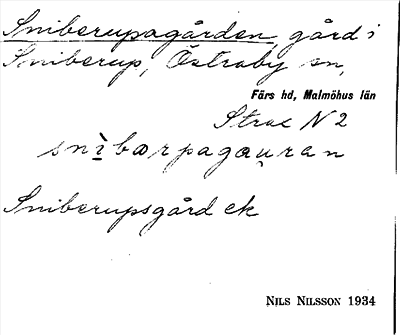 Sniberupagården, gård i
Sniberup, Östraby sn,
Färs hd, Malmöhus län
N 2
snìbœrpagœųran
Sniberupsgård ek
NILS NILSSON 1934